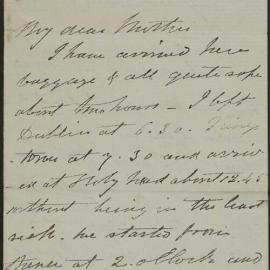 My dear Mother
I have arrived here
baggage & all quite safe
about two hours - I left
Dublin at 6.30. King
-town at 7.30 and arriv
-ed at Holy head about 12.45
without being in the least
sick. We started from
there at 2. oClock and